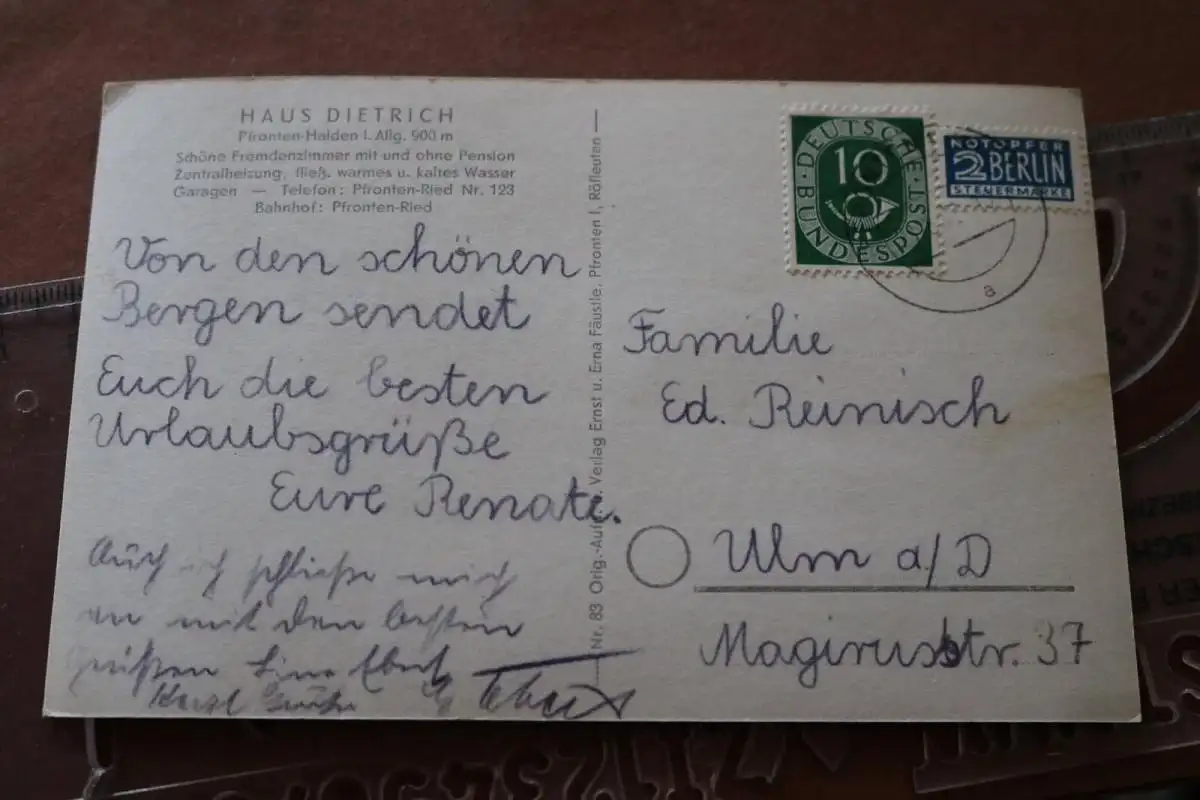 HAUS DIETRICH
Pfronten-Halden i. Allg. 900 m
Schöne Fremdenzimmer mit und ohne Pension
Zentralheizung, fließ. warmes u. kaltes Wasser
Garagen — Telefon: Pfronten-Ried Nr. 123
Bahnhof: Pfronten-Ried
Von den schönen
Bergen sendet
Euch die besten
Urlaubsgrüße
Eure Renate.
Auch ich schließe mich
an mit den besten
Grüßen
Nr. 83 Orig.-Aufn. Verlag Ernst u. Erna Fäustle, Pfronten I, Röfleuten
DEUTSCHE BUNDESPOST
10
NOTOPFER
2 BERLIN
STEUERMARKE
a
Familie
Ed. Reinisch
Ulm a/D
Magirusstr. 37